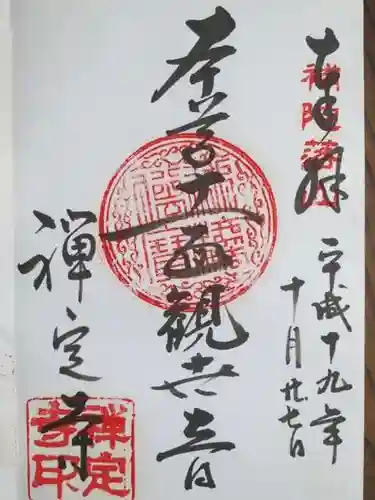 奉拝
平成十九年
十月廿七日
本尊十一面観世音
禅定寺
禅定
寺印